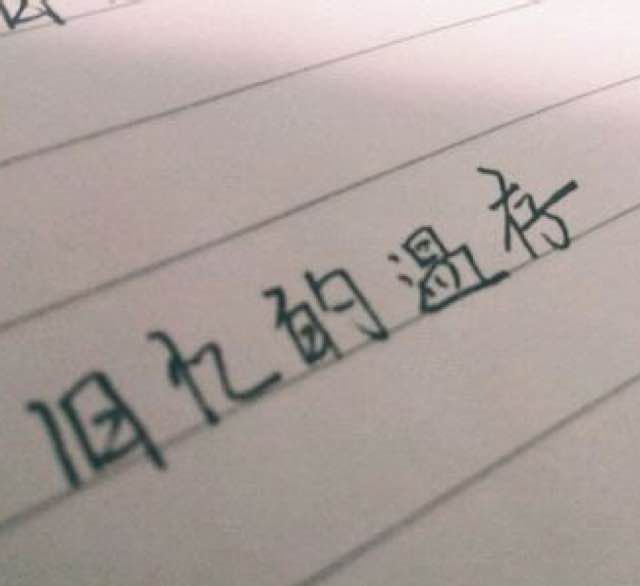 旧忆的温存